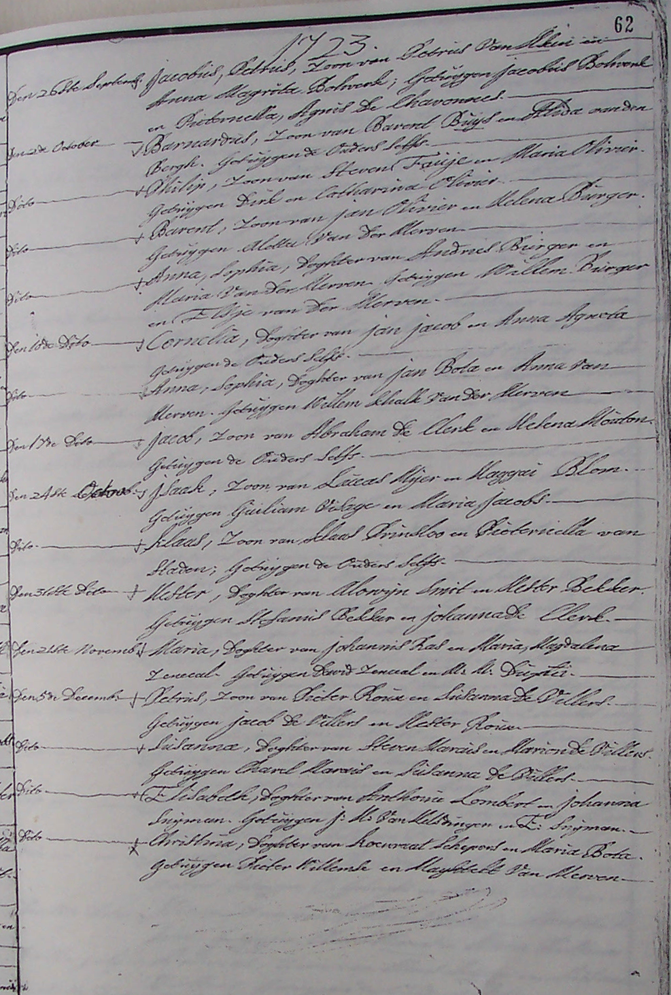 62
1723.
Den 26ste Septemb. Jacobus, Petrus, Zoon van Petrus Van Wein en
Anna Magrita Bohvenk; Getuijgen Jacobus Bohvenk
en Pieternella, Agnis De Chavonnes.
Den 2de October Barnardus, Zoon van Barent Buys en van den
Bergh. Getuijgen de Ouders Selfs.
Dito Philip, Zoon van Steven Fouje en Maria Olivier.
Getuijgen Dirk en Catharina Olivier.
Dito Barent, Zoon van Jan Olivier en Helena Burger.
Getuijgen Van Der Merven.
Dito Anna, Sophia, Doghter van Andries Burger en
Maria Van Der Merven. Getuijgen Willem Burger
en Elsje van Der Merven.
Den 10de Dito Cornelia, Doghter van Jan Jacob en Anna
Getuijgen de Ouders Selfs.
Dito Anna, Sophia, Doghter van Jan Bota en Anna Van
Merven. Getuijgen Willem Schalk Van der Merven
Den 17de Dito Jacob, Zoon van Abraham De Clerk en Helena Mouton.
Getuijgen de Ouders Selfs.
Den 24ste Octob. Jsaak, Zoon van Lucas Mijer en Haggai Blom.
Getuijgen Guiliam Visage en Maria Jacobs.
Dito Klaas, Zoon van Klaas Prinsloo en Pieternella van
Staden; Getuijgen de Ouders Selfs.
Den 31ste Dito Hester, Doghter van Alowijn Smit en Hester Bekker.
Getuijgen Bekker en Johanna De Clerk.
Den 21ste Novemb. Maria, Doghter van Johannis Ras en Maria, Magdalena
Zeneval. Getuijgen David Zeneval en M: M:
Den 5de Decemb. Petrus, Zoon van Pieter Roux en Susanna De Villers.
Getuijgen Jacob de Villers en Hester Roux.
Dito Susanna, Doghter van Steven Marais en Marion de Villers
Getuijgen Charel Marais en Susanna de Villers.
Dito Elisabeth, Doghter van Anthonie Lombert en Johanna
Snijman. Getuijgen J: H: Van Heldingen en E: Snijman.
Dito Christina, Doghter van Coenraat Schepers en Maria Bota
Getuijgen Pieter Willemse en Maghtelt Van Merven